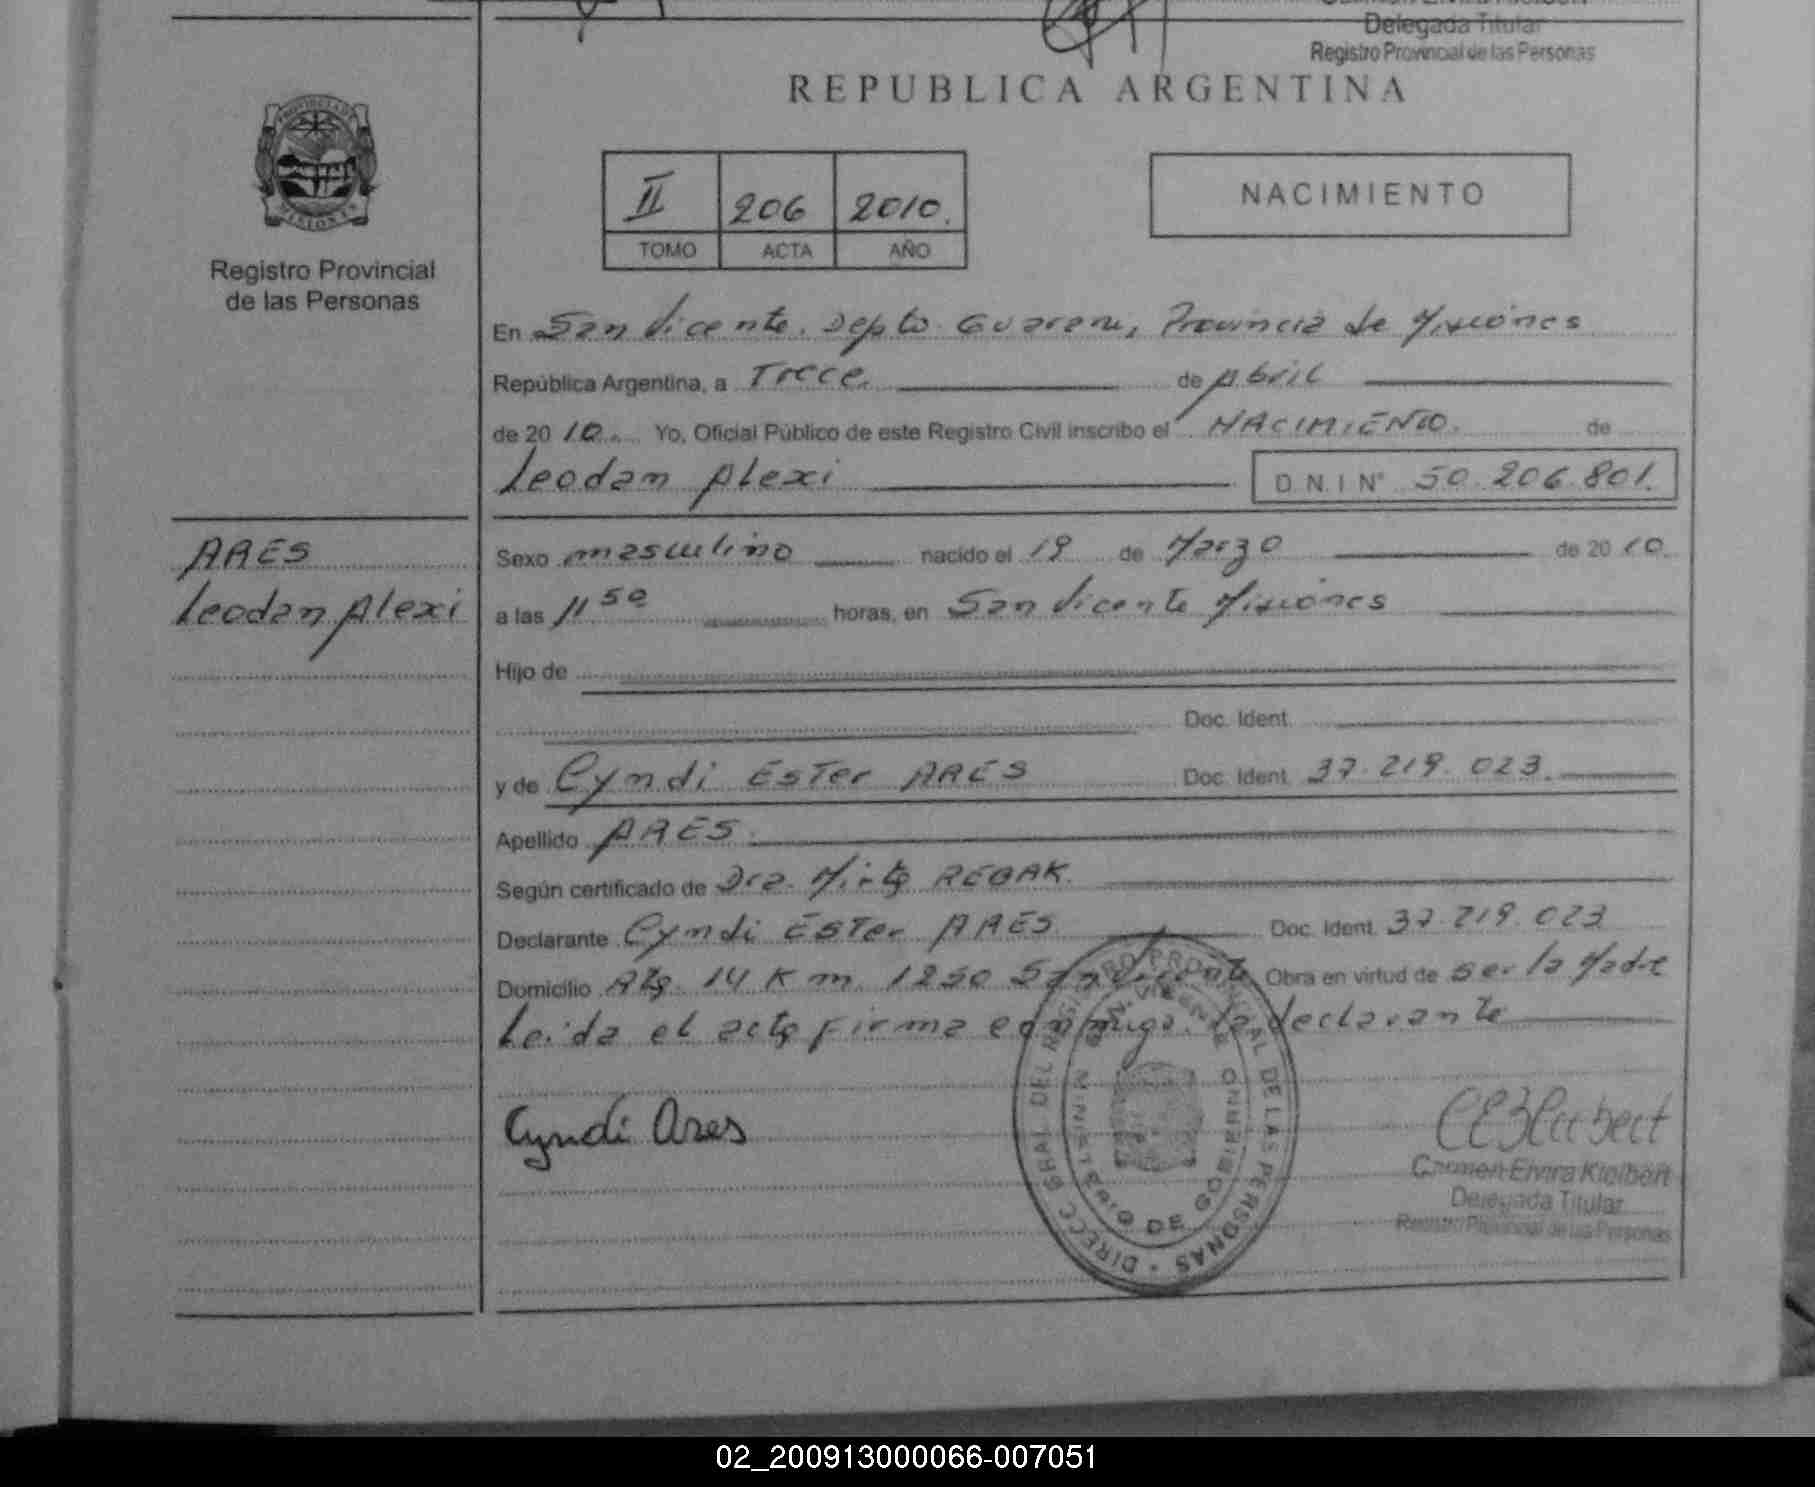 Delegada Titular
Registro Provincial de las Personas
REPUBLICA ARGENTINA
PROVINCIA DE
MISIONES
Registro Provincial
de las Personas
II 206 2010.
TOMO ACTA AÑO
NACIMIENTO
En San Vicente. Depto. Guarani, Provincia de Misiones
República Argentina, a Trece de Abril
de 2010. Yo, Oficial Público de este Registro Civil inscribo el NACIMIENTO. de
Leodan Alexi D.N.I Nº 50.206.801.
ARES
Leodan Alexi
Sexo masculino nacido el 19 de Marzo de 2010.
a las 11 50 horas, en San Vicente Misiones
Hijo de
Doc. Ident.
y de Cyndi Ester ARES Doc. Ident. 37.219.023.
Apellido ARES.
Según certificado de Dra. Mirta REBAK.
Declarante Cyndi Ester ARES Doc. Ident. 37.219.023
Domicilio Rta. 14 Km. 1250 San Vicente Obra en virtud de ser la Madre
Leida el acta firma conmigo. la declarante
Cyndi Ares
DIRECC. GRAL. DEL REGISTRO PROVINCIAL DE LAS PERSONAS
SAN VICENTE
MINISTERIO DE GOBIERNO
Carmen Elvira Kielbert
Delegada Titular
Registro Provincial de las Personas
02_200913000066-007051